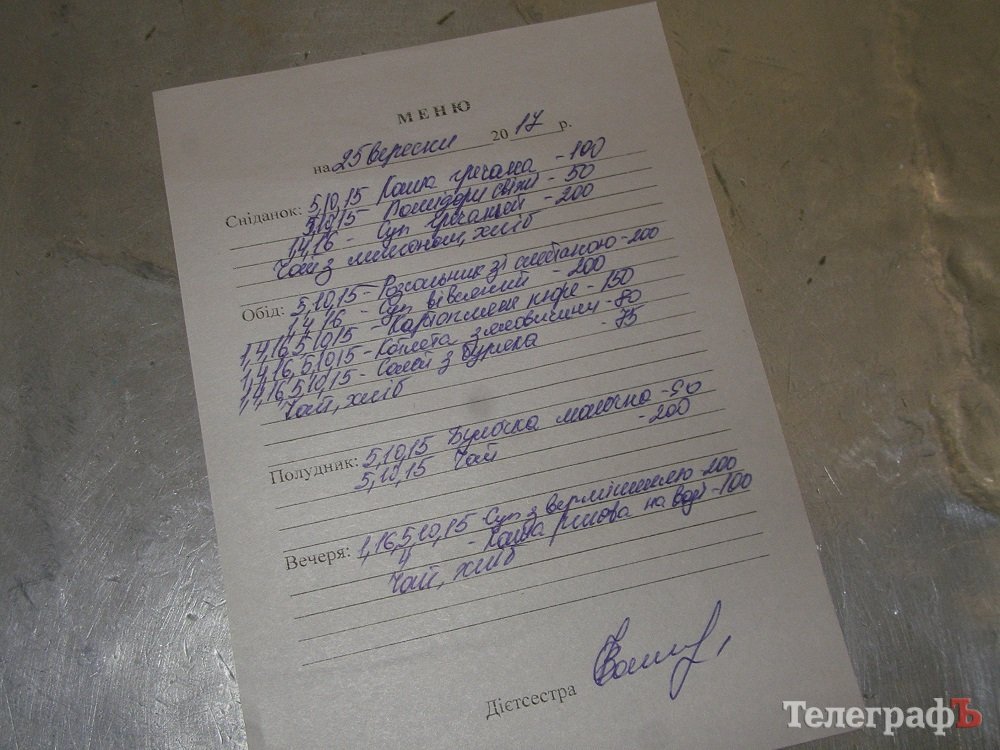 МЕНЮ
на 25 вересня 2017 р.
Сніданок: 5,10,15 Каша гречана - 100
5,10,15 - Помидори свіжі - 50
1,4,16 - Суп гречаний - 200
Чай з лимоном, хліб
Обід: 5,10,15 - Розсольник зі сметаною - 200
1,4,16 - Суп вівсяний - 200
1,4,16,5,10,15 - Картопляне пюре - 150
1,4,16,5,10,15 - Котлета з яловичини - 80
1,4,16,5,10,15 - Салат з буряка - 75
Чай, хліб
Полудник: 5,10,15 Булочка молочна - 90
5,10,15 Чай - 200
Вечеря: 1,16,5,10,15 Суп з вермішеллю - 200
4 - Каша рисова на воді - 100
Чай, хліб
Дієтсестра
ТелеграфЪ